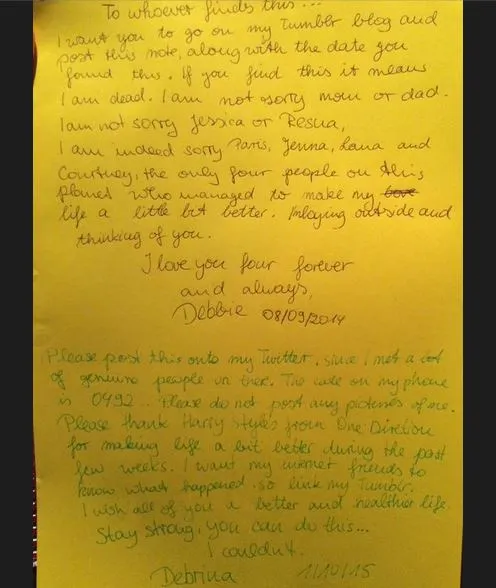 To whoever finds this...
I want you to go on my Tumblr blog and
post this note, along with the date you
found this. If you find this it means
I am dead. I am not sorry mom or dad.
I am not sorry Jessica or Resua,
I am indeed sorry Paris, Jenna, Lana and
Courtney, the only four people on this
planet who managed to make my
life a little bit better. outside and
thinking of you.
I love you four forever
and always,
Debbie 08/09/2014
Please post this onto my Twitter, since I met a lot
of genuine people on there. The code on my phone
is 0492... Please do not post any pictures of me.
Please thank Harry Styles from One Diretion
for making life a bit better during the past
few weeks. I want my internet friends to
know what happened so link my Tumblr.
I wish all of you a better and healthier life.
Stay strong, you can do this...
I couldn't.
Debrina 1/10/15